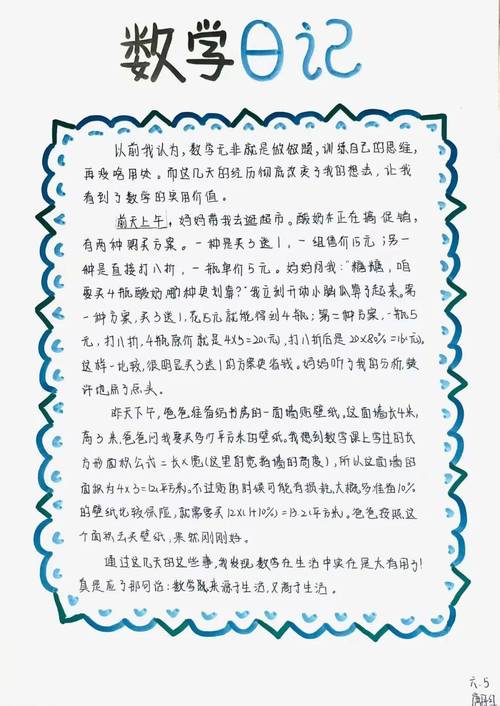 数学日记
以前我认为,数学无非就是做做题,训练自己的思维,
再没啥用处。而这几天的经历彻底改变了我的想法,让我
看到了数学的实用价值。
前天上午,妈妈带我去逛超市。酸奶正在搞促销,
有两种购买方案。一种是买3送1,一组售价15元;另一
种是直接打八折,一瓶单价5元。妈妈问我:"糖糖,咱
要买4瓶酸奶,哪种更划算?"我立刻开动小脑瓜算了起来。第
一种方案,买3送1,花15元就能得到4瓶;第二种方案,一瓶5
元,打八折,4瓶原价就是4×5=20(元),打八折后是20×80%=16(元)。
这样一比较,很明显买3送1的方案更省钱。妈妈听了我的分析,赞
许地点了点头。
昨天下午,爸爸准备给书房的一面墙贴壁纸。这面墙长4米,
高3米,爸爸问我要买多少平方米的壁纸。我想到数学课上学过的长
方形面积公式=长×宽(这里的宽指墙的高度),所以这面墙的
面积为4×3=12(平方米)。不过贴的时候可能有损耗,大概多准备10%
的壁纸比较保险,就需要买12×(1+10%)=13.2(平方米)。爸爸按照这
个面积去买壁纸,果然刚刚好。
通过这几天的这些事,我发现数学在生活中实在是大有用了!
真是应了那句话:数学既来源于生活,又高于生活。
六.5